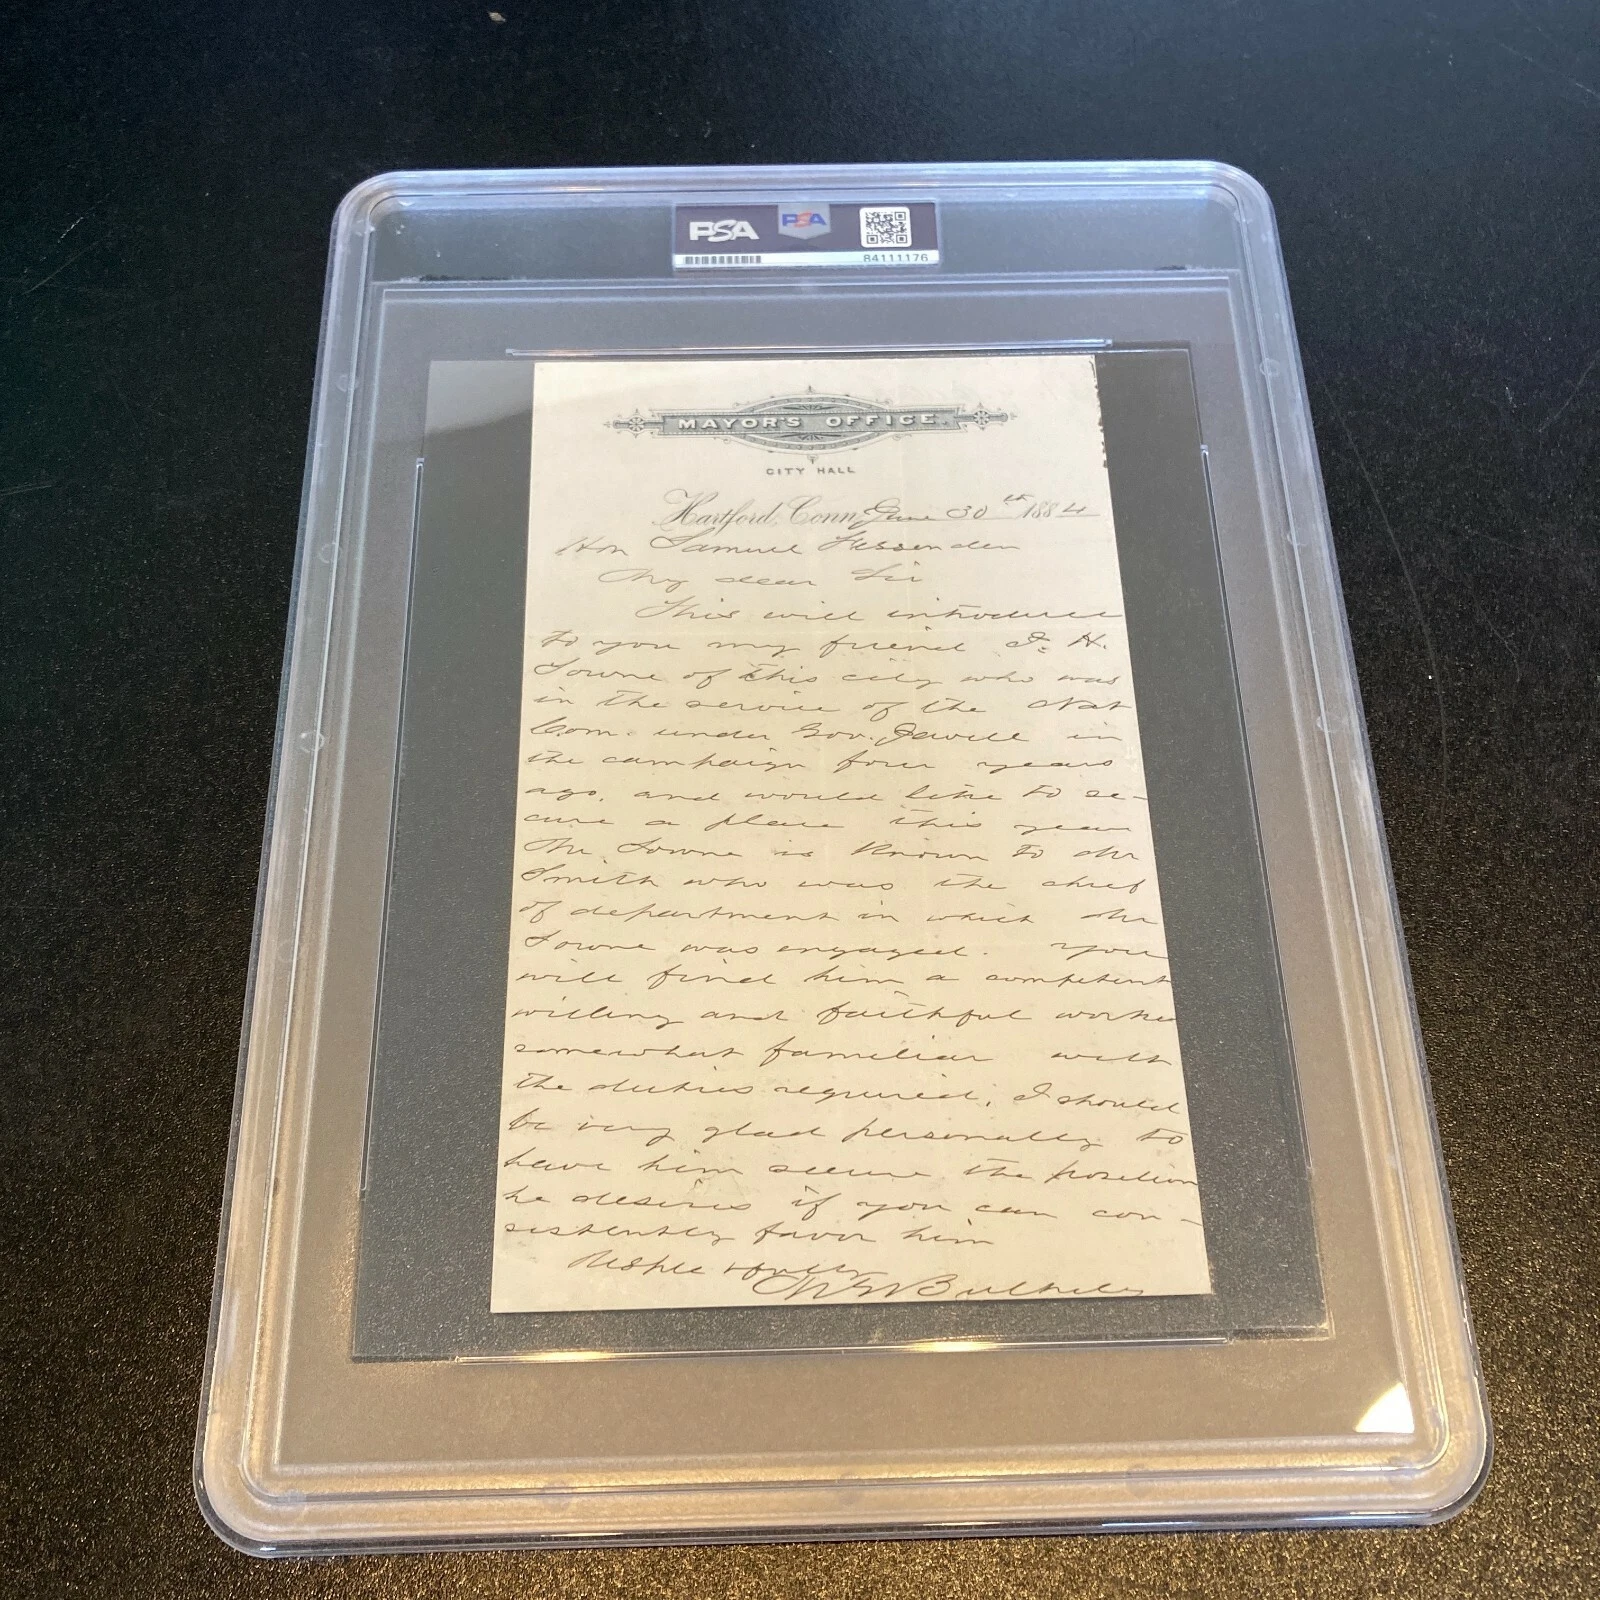 PSA PSA
84111176
MAYOR'S OFFICE.
CITY HALL
Hartford, Conn. June 30th 1884
Hon Samuel Fessenden
My dear Sir
This will introduce
to you my friend J. H.
Towne of this city who was
in the service of the Nat
Com. under Gov. Jewell in
the campaign four years
ago, and would like to se-
cure a place this year
Mr Towne is known to Mr
Smith who was the chief
of department in which Mr
Towne was engaged. You
will find him a competent
willing and faithful worker
somewhat familiar with
the duties required. I should
be very glad personally to
have him secure the position
he desires if you can con-
sistently favor him
Respectfully
M G Bulkeley